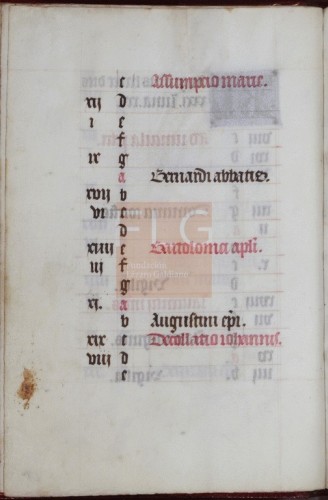 c Assumpcio marie.
xij d
i e
f
ix g
a Bernardi abbatis.
xvij b
vi c
d
xiiij e Bartolomei apli.
iij f
g
xi. a
b Augustini epi.
xix c Decollatio iohannis.
viij d
e
FLG